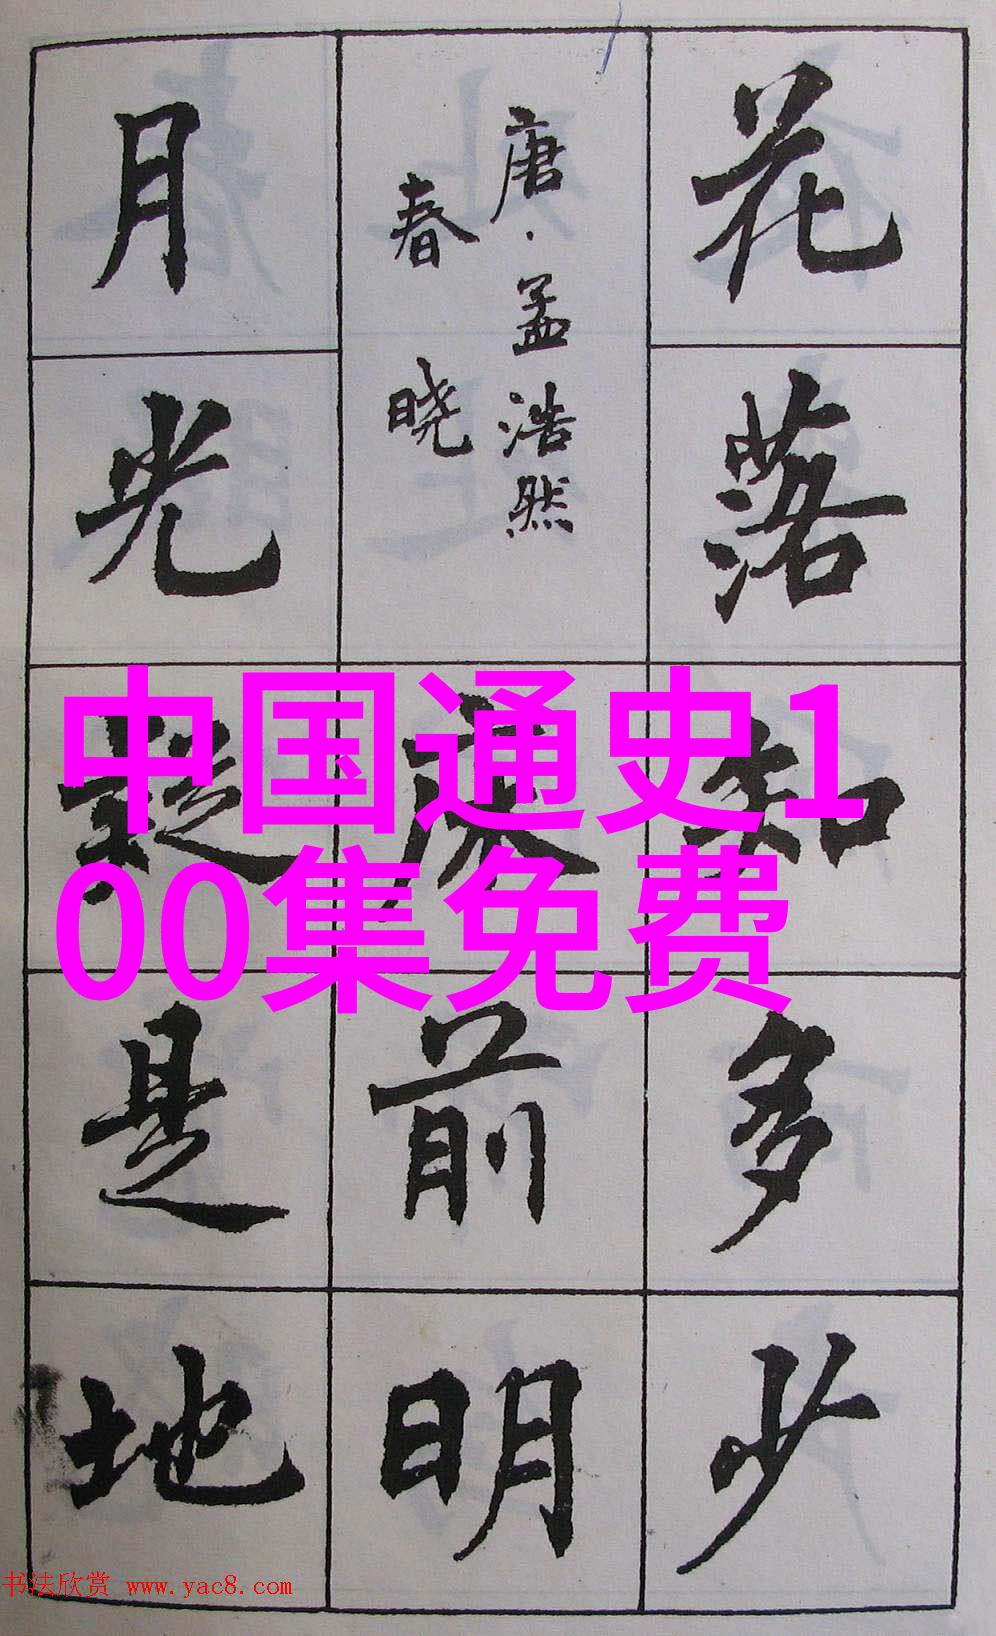 花落知多少
唐·孟浩然
春晓
床前明
月光疑是地
中国通史1
00集免费
书法欣赏 www.yac8.com